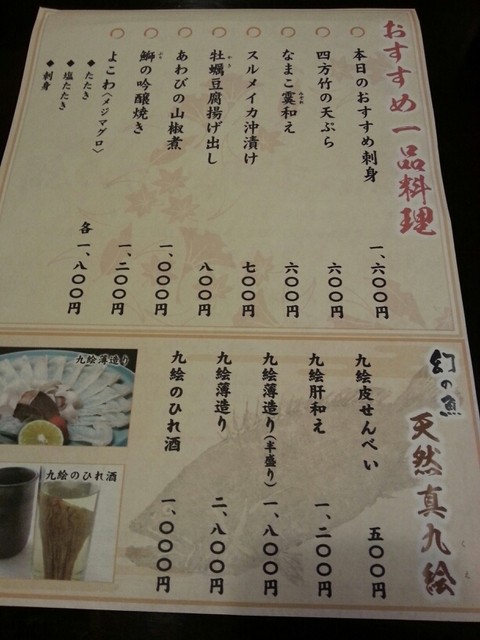 おすすめ一品料理
○本日のおすすめ刺身 一、六〇〇円
○四方竹の天ぷら 六〇〇円
○なまこ霙和え 六〇〇円
みぞれ
○スルメイカ沖漬け 七〇〇円
○牡蠣豆腐揚げ出し 八〇〇円
かき
○あわびの山椒煮 一、〇〇〇円
○鰤の吟醸焼き 一、二〇〇円
ぶり
○よこわ(メジマグロ) 各 一、八〇〇円
◆たたき
◆塩たたき
◆刺身
幻の魚 天然真九絵
くえ
九絵皮せんべい 五〇〇円
九絵肝和え 一、二〇〇円
九絵薄造り(半盛り) 一、八〇〇円
九絵薄造り 二、八〇〇円
九絵のひれ酒 一、〇〇〇円
九絵薄造り
九絵のひれ酒